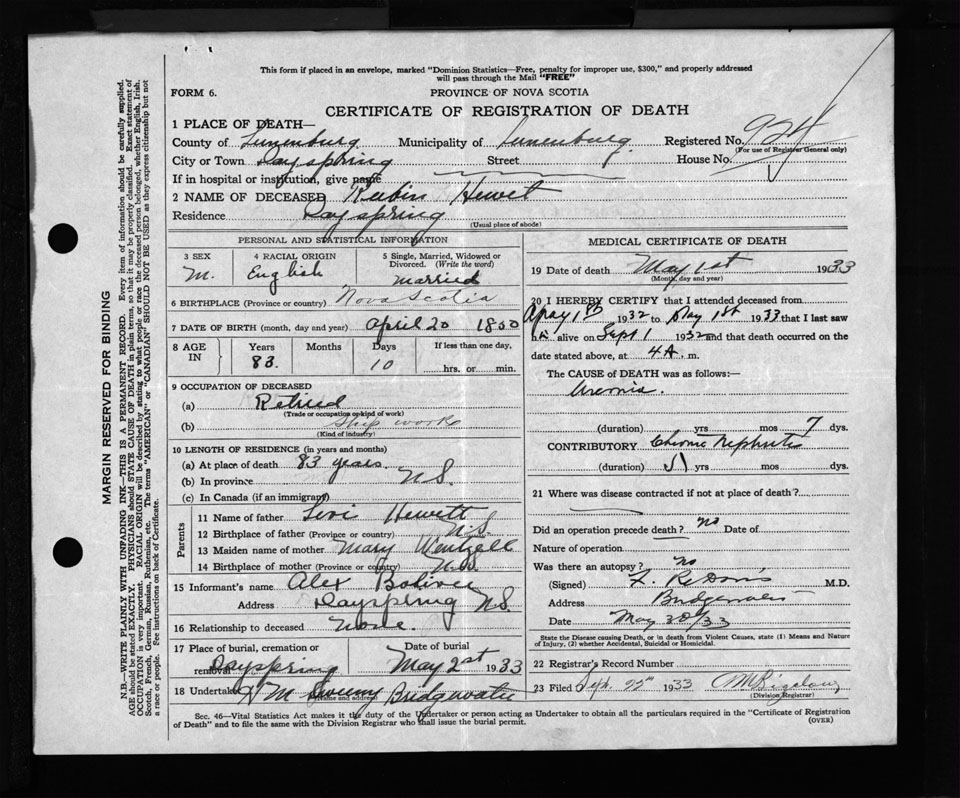 This form if placed in an envelope, marked "Dominion Statistics—Free, penalty for improper use, $300," and properly addressed
will pass through the Mail "FREE"
FORM 6.
PROVINCE OF NOVA SCOTIA
CERTIFICATE OF REGISTRATION OF DEATH
1 PLACE OF DEATH—
County of Lunenburg Municipality of Lunenburg Registered No. 924
(For use of Registrar General only)
City or Town Dayspring Street House No.
If in hospital or institution, give name
2 NAME OF DECEASED Rubin Hewet
Residence Dayspring
(Usual place of abode)
PERSONAL AND STATISTICAL INFORMATION
3 SEX M.
4 RACIAL ORIGIN English
5 Single, Married, Widowed or
Divorced. (Write the word)
married
6 BIRTHPLACE (Province or country) Nova Scotia
7 DATE OF BIRTH (month, day and year) April 20 1850
8 AGE IN
Years Months Days If less than one day,
83. 10 hrs. or min.
9 OCCUPATION OF DECEASED
(a) Retired
(Trade or occupation or kind of work)
(b) Ship work
(Kind of industry)
10 LENGTH OF RESIDENCE (in years and months)
(a) At place of death 83 years.
(b) In province N.S.
(c) In Canada (if an immigrant)
Parents
11 Name of father Levi Hewett
12 Birthplace of father (Province or country) N.S
13 Maiden name of mother Mary Wentzell
14 Birthplace of mother (Province or country) N.S.
15 Informant's name Alex Boliver
Address Dayspring N.S.
16 Relationship to deceased None.
17 Place of burial, cremation or
removal Dayspring
Date of burial
May 2nd 1933
18 Undertaker H M Sweeny Bridgewater
MEDICAL CERTIFICATE OF DEATH
19 Date of death May 1st 1933
(Month, day and year)
20 I HEREBY CERTIFY that I attended deceased from
1932 to May 1st 1933 that I last saw
h alive on Sept 1 1932 and that death occurred on the
date stated above, at 4 A. m.
The CAUSE OF DEATH was as follows:—
Uremia.
(duration) yrs mos 7 dys.
CONTRIBUTORY Chronic Nephritis
(duration) yrs mos dys.
21 Where was disease contracted if not at place of death?
Did an operation precede death? no Date of
Nature of operation
Was there an autopsy? no
(Signed) M.D.
Address Bridgewater
Date May 30/33
State the Disease causing Death, or in death from Violent Causes, state (1) Means and Nature
of Injury, (2) whether Accidental, Suicidal or Homicidal.
22 Registrar's Record Number
23 Filed Sep. 1933
(Division Registrar)
Sec. 46—Vital Statistics Act makes it the duty of the Undertaker or person acting as Undertaker to obtain all the particulars required in the "Certificate of Registration
of Death" and to file the same with the Division Registrar who shall issue the burial permit. (OVER)
MARGIN RESERVED FOR BINDING
N.B.—WRITE PLAINLY WITH UNFADING INK—THIS IS A PERMANENT RECORD. Every item of information should be carefully supplied.
AGE should be stated EXACTLY. PHYSICIANS should STATE CAUSE OF DEATH in plain terms, so that it may be properly classified. Exact statement of
OCCUPATION is very important. RACIAL ORIGIN will be described by stating to what people or race the deceased person belonged, whether English, Irish,
Scotch, French, German, Russian, Ruthenian, etc. The terms "AMERICAN" or "CANADIAN" SHOULD NOT BE USED as they express citizenship but not
a race or people. See instructions on back of Certificate.